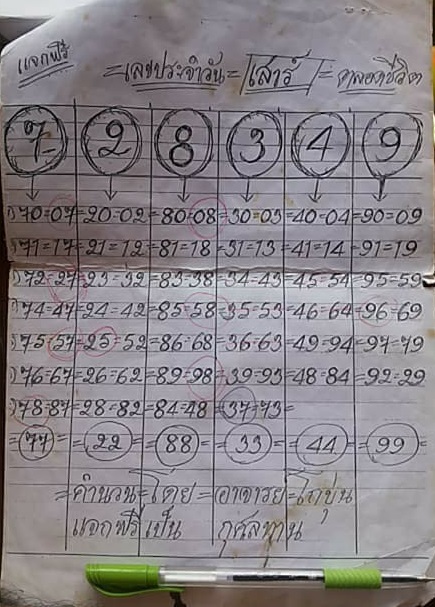 แจกฟรี =เลขประจำวัน= เสาร์ =ตลอดชีวิต
7 2 8 3 4 9
70=07=20=02=80=08=30=03=40=04=90=09
71=17=21=12=81=18=31=13=41=14=91=19
72=27=23=32=83=38=34=43=45=54=95=59
74=47=24=42=85=58=35=53=46=64=96=69
75=57=25=52=86=68=36=63=49=94=97=79
76=67=26=62=89=98=39=93=48=84=92=29
78=87=28=82=84=48=37=73=
=77=22=88=33=44=99=
=คำนวน=โดย=อาจารย์=โกปุ่น
แจกฟรี เป็น กุศลทาน